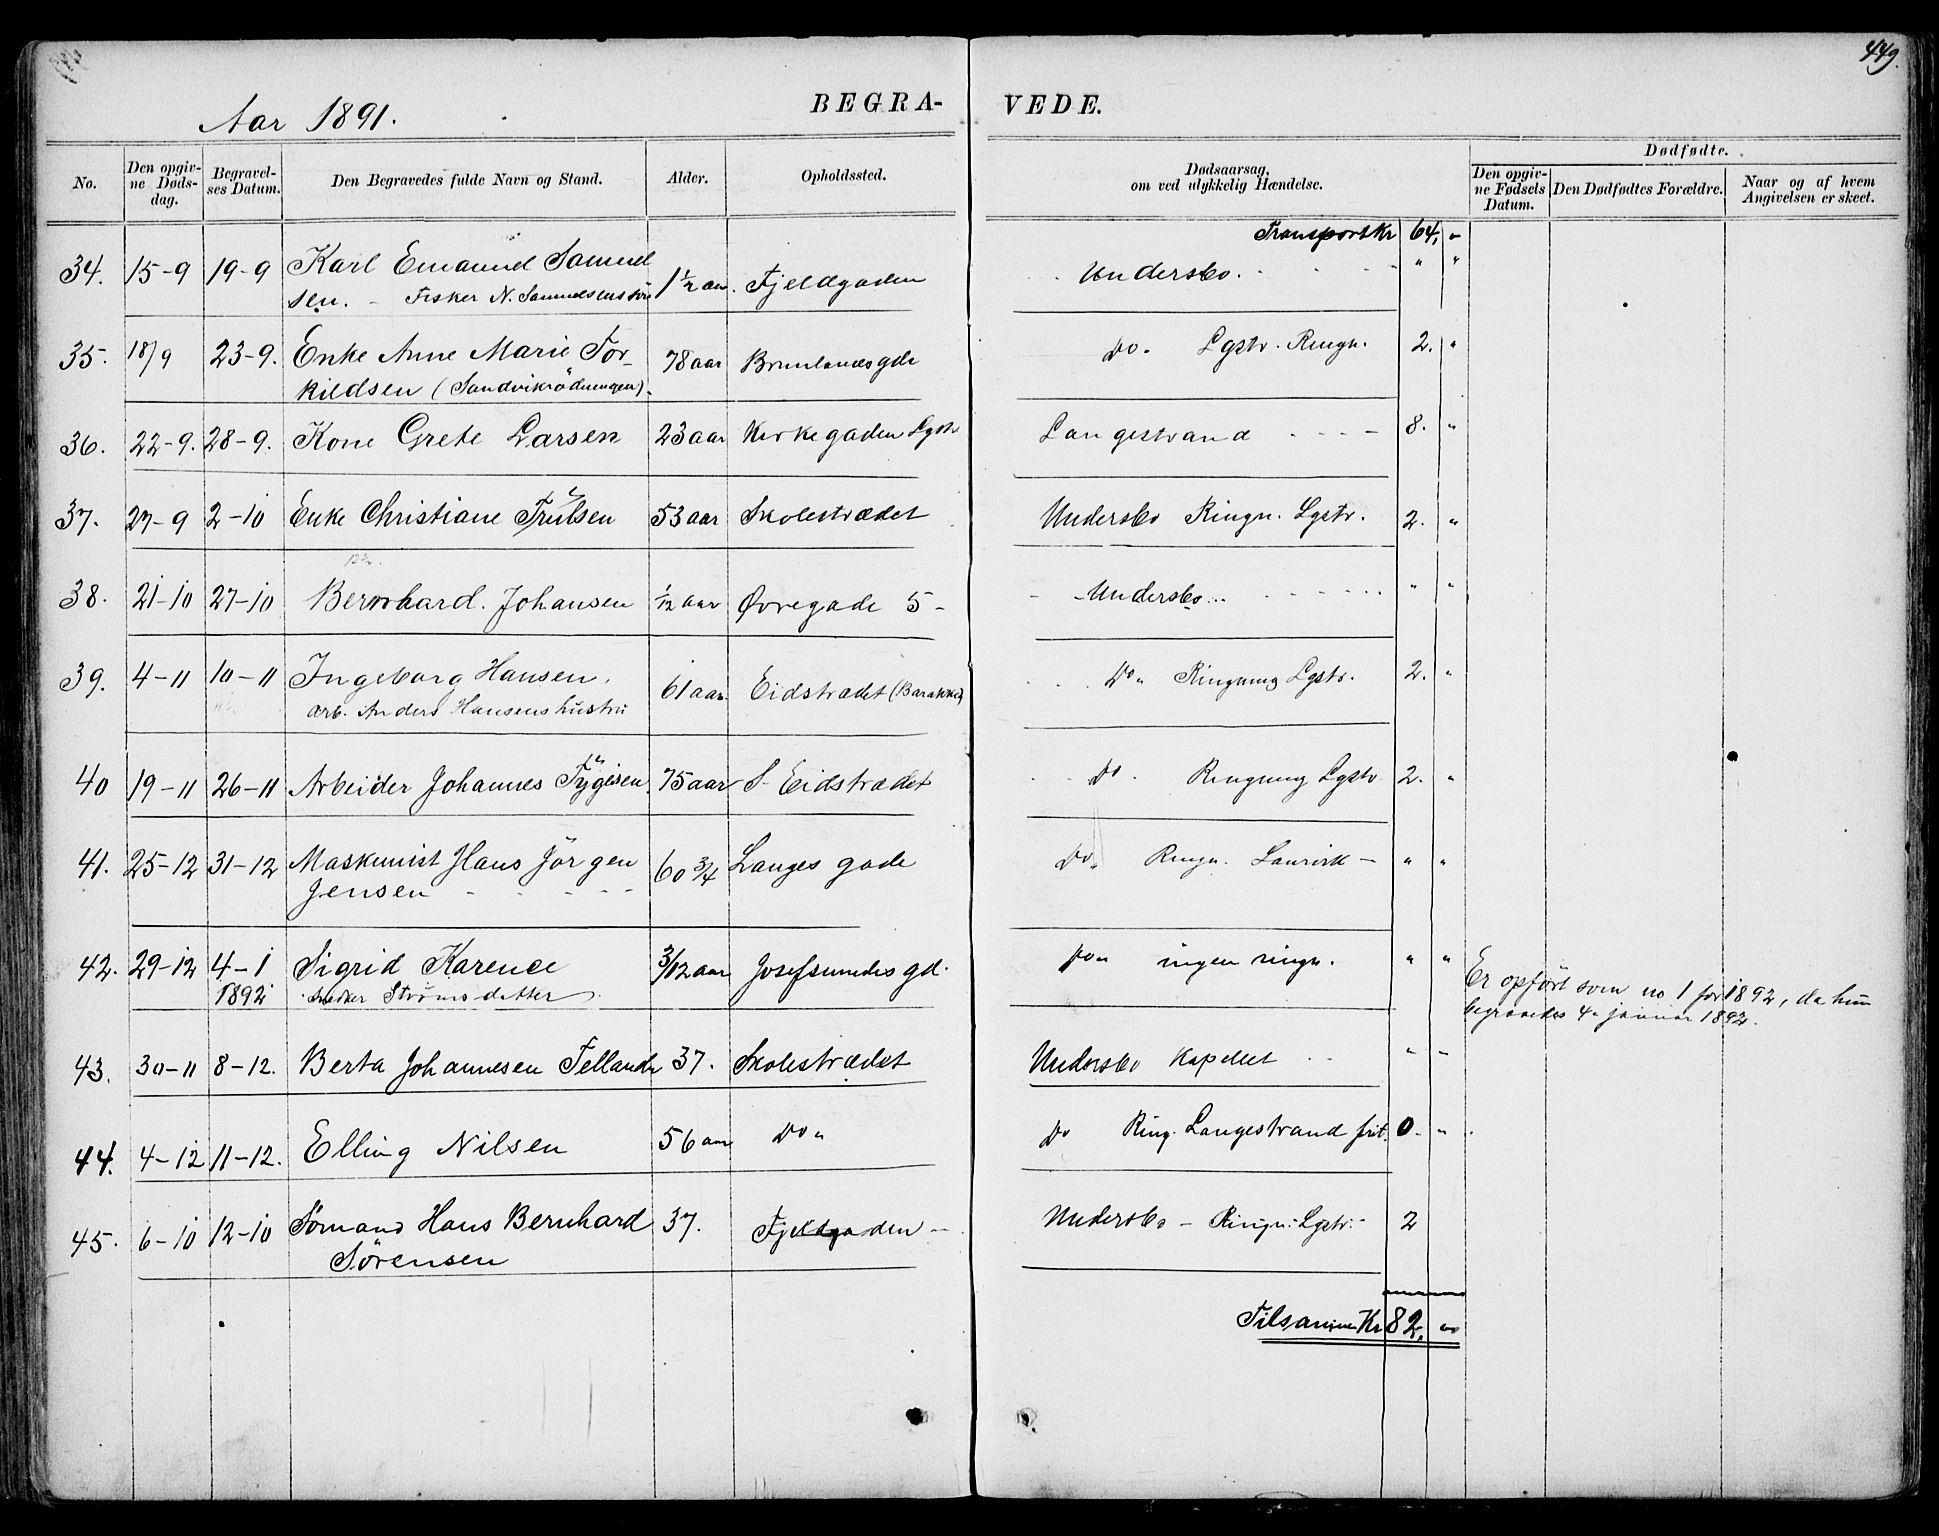 449.
Aar 1891. BEGRA- VEDE.
No. Den opgivne Dødsdag. Begravelses Datum. Den Begravedes fulde Navn og Stand. Alder. Opholdssted. Dødsaarsag, om ved ulykkelig Hændelse. Dødfødte. Den opgivne Fødsels Datum. Den Dødfødtes Forældre. Naar og af hvem Angivelsen er skeet.
Transport Kr 64, "
34. 15-9 19-9 Karl Emanuel Samuel 1 1/2 aar. Fjeldgaden Undersbo. " "
sen. - Fisker N. Samuelsens søn
35. 18/9 23-9. Enke Anne Marie Tor- 78 aar Brunlanæsgde Do. Lgstr. Ringn. 2. "
kildsen (Sandviksrödningen).
36. 22-9. 28-9. Kone Grete Larsen 23 aar Kirkegaden Lgstr Langestrand - - - - 8. "
37. 27-9 2-10 Enke Christiane Trulsen 53 aar Skolestrædet Undersbo Ringn. Lgstr. 2. "
38. 21-10 27-10 Bernhard. Johansen 1/12 aar Øvregade 5- - Undersbo... " "
39. 4-11 10-11 Ingeborg Hansen. 61 aar. Eidstrædet (Barakken) Do " Ringning Lgstr. 2. "
arb. Anders Hansens hustru
40 19-11 26-11 Arbeider Johannes Tygesen 75 aar S. Eidstrædet Do. Ringning Lgstr. 2. "
41. 25-12 31-12 Maskinist Hans Jörgen 60 3/4 Langes gade Do. Ringn. Laurvik - " "
Jensen - - - - -
42. 29-12 4-1 Sigrid Karence 3/12 aar Josefsmindes gd. Do " ingen ringn. " " Er opført som no 1 for 1892, da hun
1892 Strømsdatter begravedes 4. januar 1892.
43. 30-11 8-12. Berta Johannesen Tellander 37. Skolestrædet Undersbo Kapellet " "
44. 4-12 11-12. Elling Nilsen 56 aar Do " Do Ring. Langestrand frit. 0. "
45. 6-10 12-10 Sömand Hans Bernhard 37. Fjeldgaden - Undersbo - Ringn. Lgstr. - 2
Sörensen
Tilsammen Kr 82, "